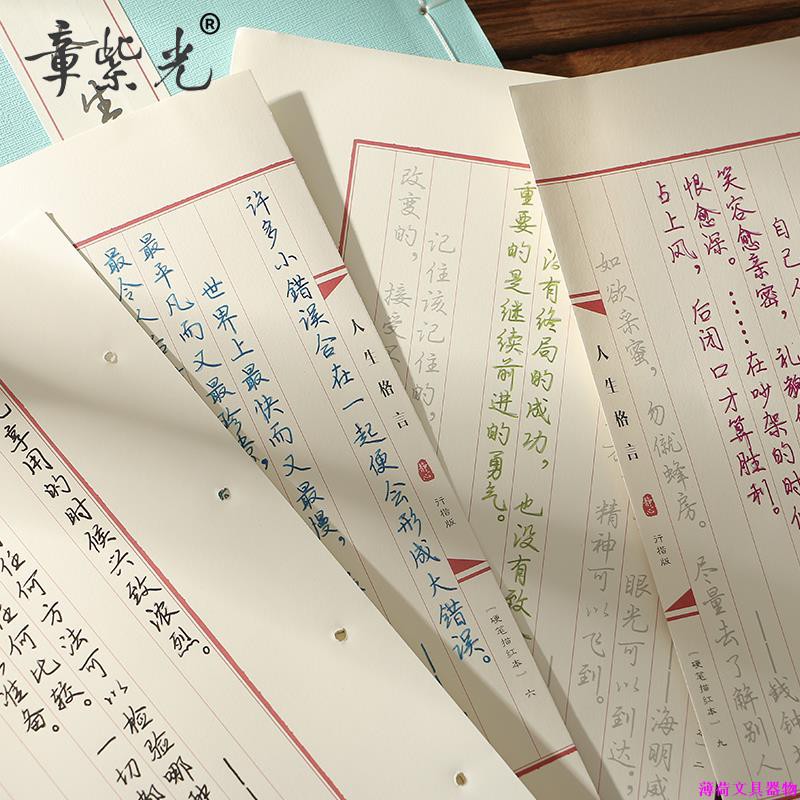 章紫光®
生
许多小错误合在一起便会形成大错误。
世界上最快而又最慢，
最平凡而又最珍贵，
最令人
人生格言
静心
行楷版
（硬笔描红本）六
享用的时候兴致浓烈。
任何方法可以检验哪种
任何比较。一切都
准备。
没有终局的成功，也没有致
重要的是继续前进的勇气。
记住该记住的，
改变的，接受
精神可以飞到。
眼光可以到达，
——海明威
自己人
笑容愈亲密，礼貌
恨愈深。……在吵架的时候
占上风，后闭口才算胜利。
——钱钟书
如欲采蜜，勿僦蜂房。
尽量去了解别人
人生格言
静心
行楷版
（硬笔描红本）九
薄荷文具器物